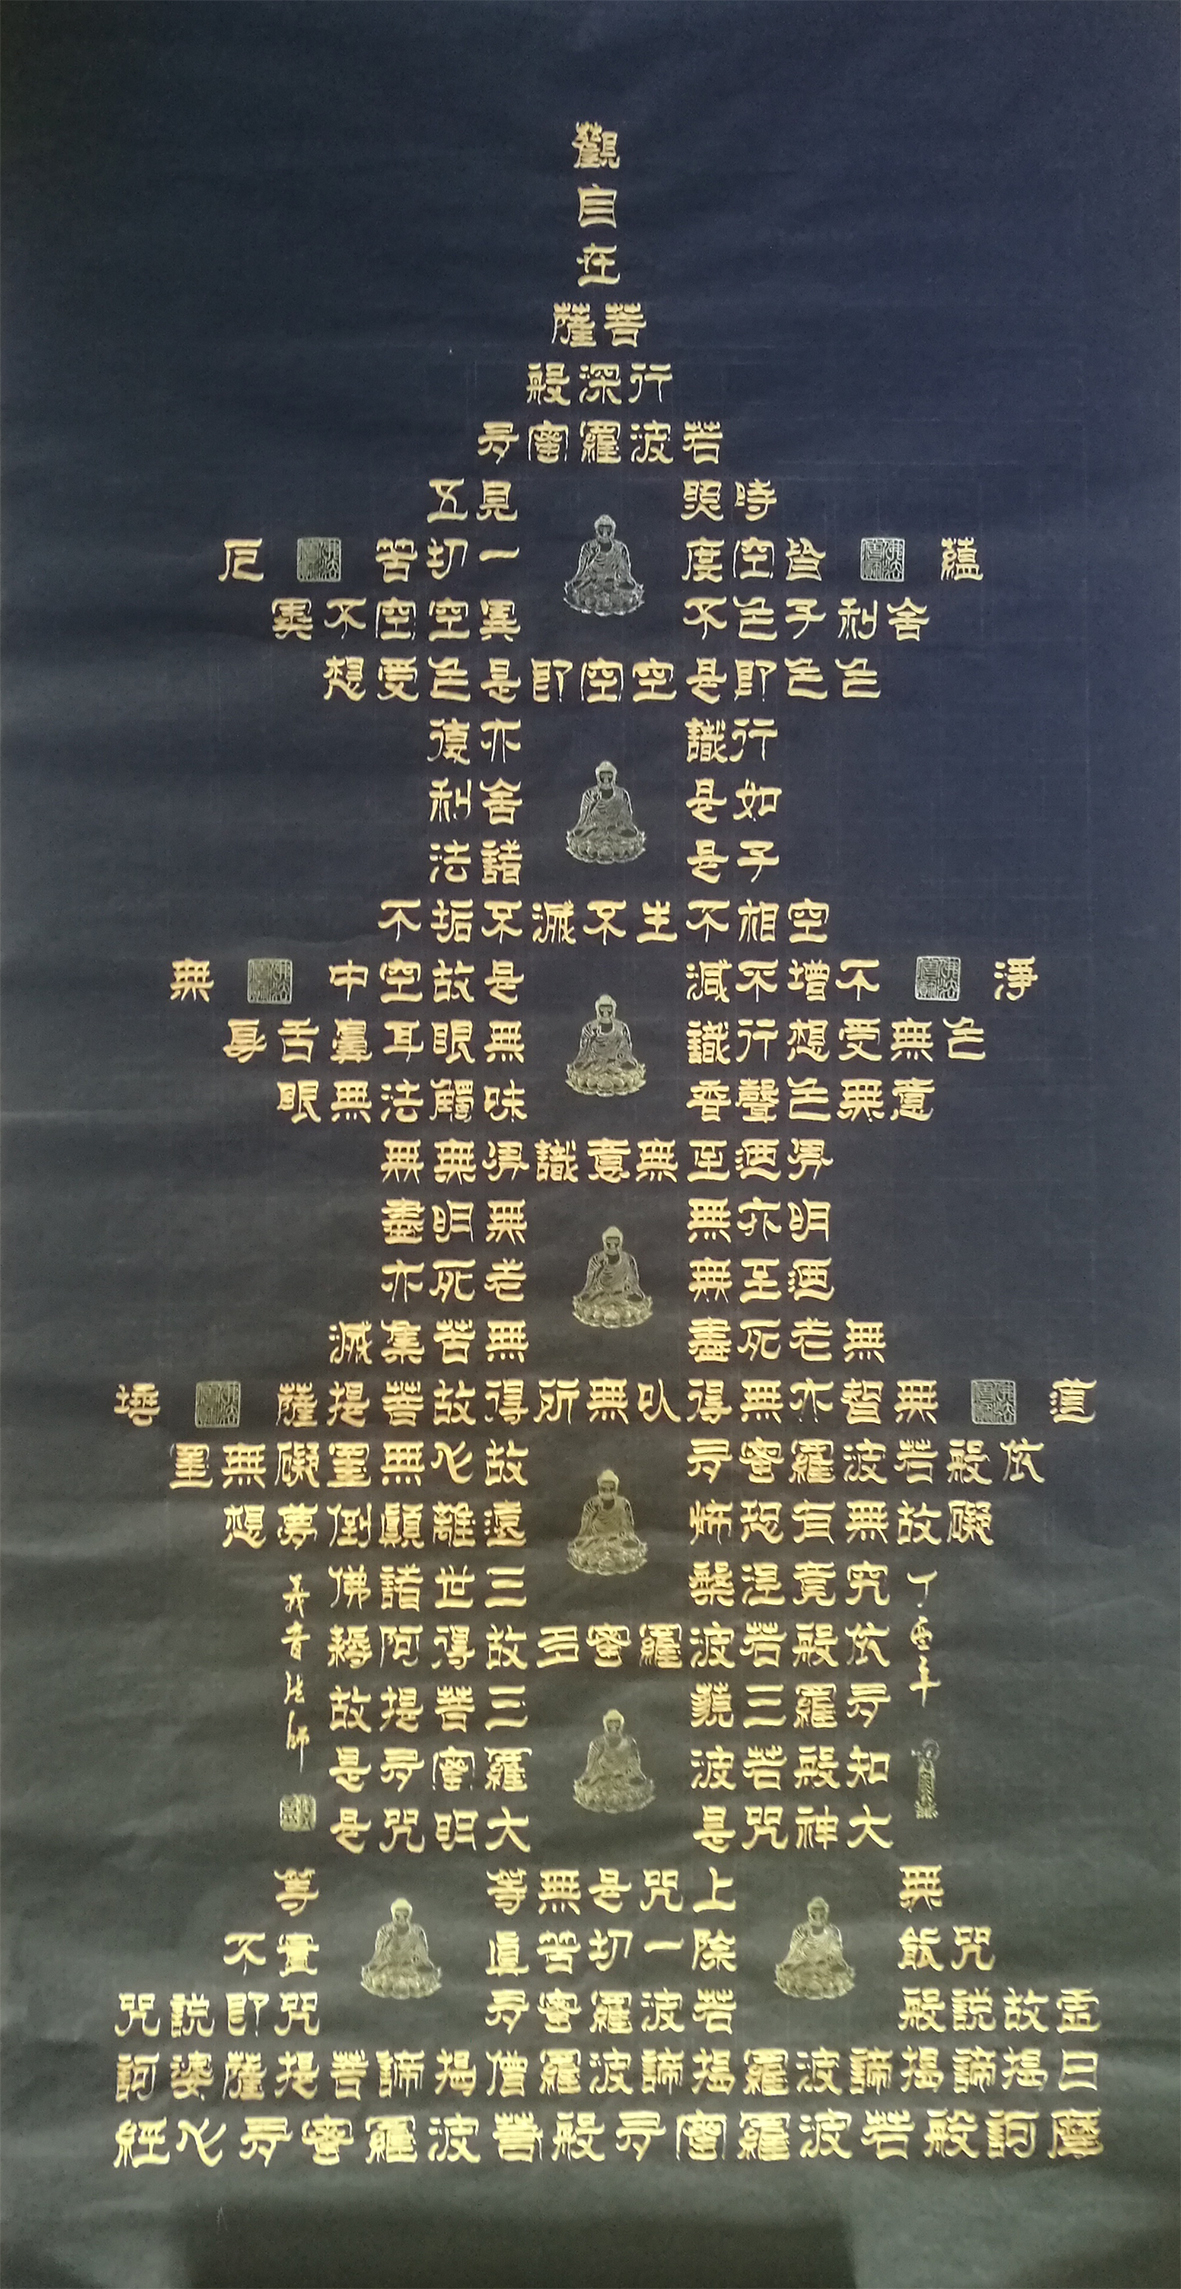 觀
自
在
菩薩
行深般
若波羅蜜多
時照見五
蘊皆空度一切苦厄
舍利子色不異空空不異
色色即是空空即是色受想
行識亦復
如是舍利
子是諸法
空相不生不滅不垢不
淨不增不減是故空中無
色無受想行識無眼耳鼻舌身
意無色聲香味觸法無眼
界迺至無意識界無無
明亦無無明盡
迺至無老死亦
無老死盡無苦集滅
道無智亦無得以無所得故菩提薩埵
依般若波羅蜜多故心無罣礙無罣
礙故無有恐怖遠離顛倒夢想
究竟涅槃三世諸佛
依般若波羅蜜多故得阿耨
多羅三藐三菩提故
知般若波羅蜜多是
大神咒是大明咒是
無上咒是無等等
咒能除一切苦真實不
虛故說般若波羅蜜多咒即說咒
曰揭諦揭諦波羅揭諦波羅僧揭諦菩提薩婆訶
摩訶般若波羅蜜多般菩波羅蜜多心經
丁酉年
義音法師